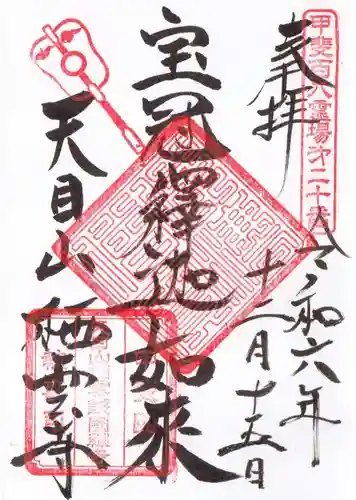 甲斐百八霊場第二十番
奉拝
令和六年
十二月十五日
宝冠釋迦如来
天目山栖雲寺